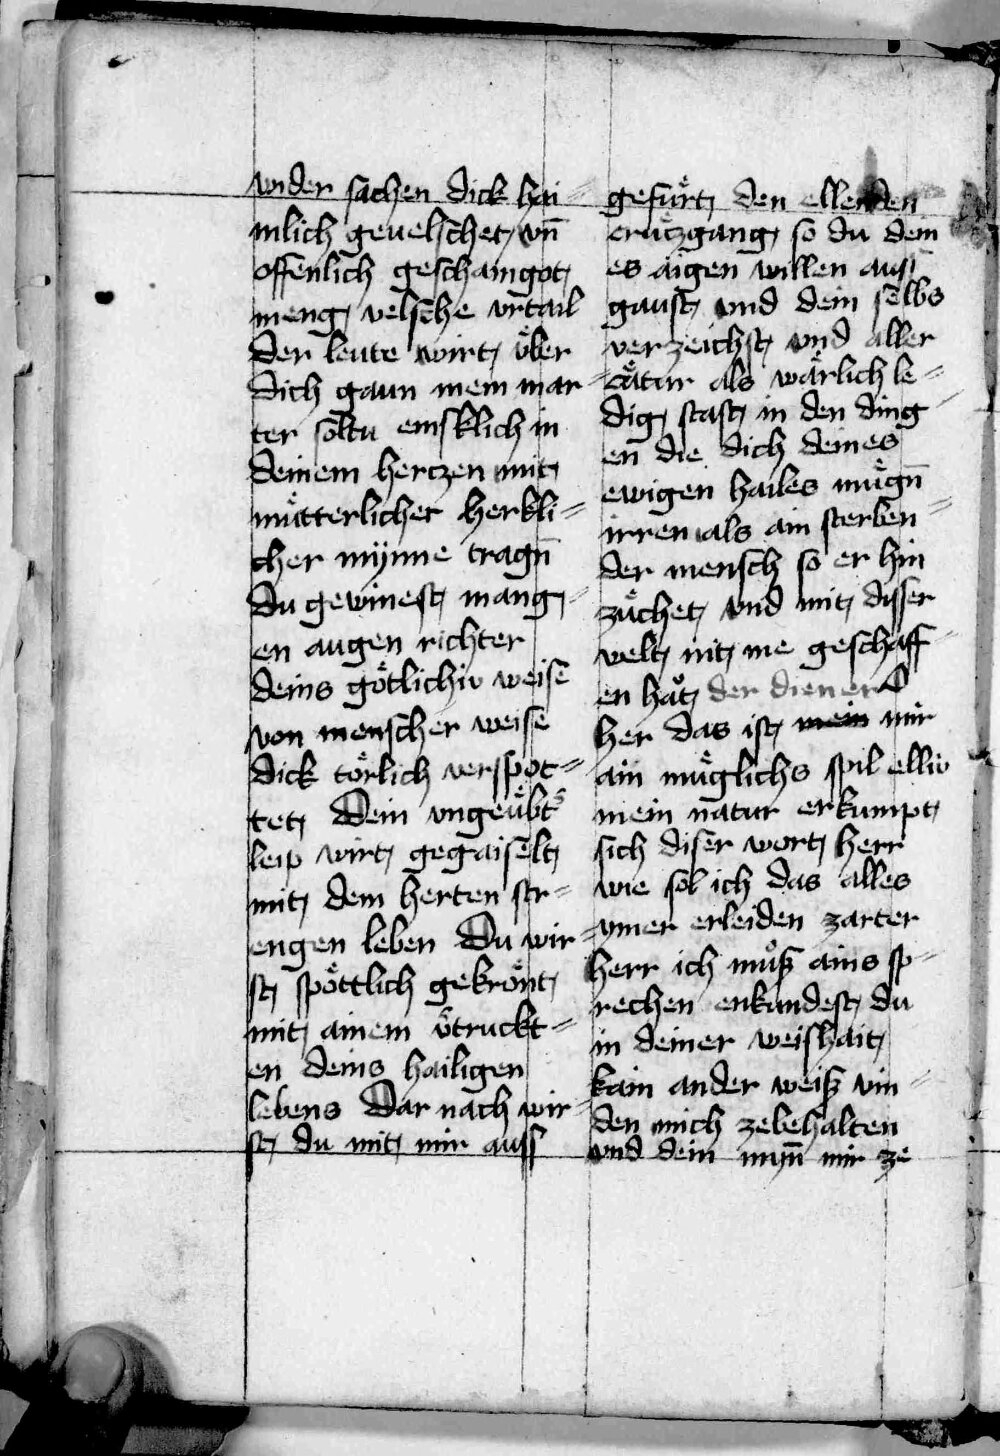 vnder sachen dick hai=
mlich geuelschet vn̄
offenlich geschamgot
meng velsche vrtail
der leute wirt v̈ber
dich gaun mein mar=
ter soltu emsklich in
deinem hertzen mit
mu̎tterlicher herkli=
cher mÿnne tragn̄
Du gewinest mang=
en augen richter
deins go̎tlichiv weise
von menscher weise
dick to̎rlich verspot=
tet Dein vngeu̎bt᷒
leip wirt gegaiselt
mit dem herten str=
engen leben Du wir=
st spo̎ttlich gekro̎nt
mit ainem v̎truckt=
en deins hailigen
lebens Dar nach wir=
st du mit mir auss
gefu̎rt den ellenden
cru̎tzgang so du dem
es aigen willen aus
gaust vnd dein selbs
verzeichst vnd aller
cra̎tur als wa̎rlich le=
dig stast in den ding=
en die dich deines
ewigen hailes mu̎gn̄
irren als ain sterben=
der mensch so er hin
zu̎chet vnd mit disser
welt nit me geschaff=
en ha̎t der diener
her das ist mein mir
ain mu̎glichs spil elliv
mein natur erkumpt
sich diser wort herr
wie sol ich das alles
ymer erleiden zarter
herr ich muͦsz ains sp=
rechen enkundest du
in deiner weishait
kain ander weisz vin=
den mich zebehalten
vnd dein mӯn̄ mir ze